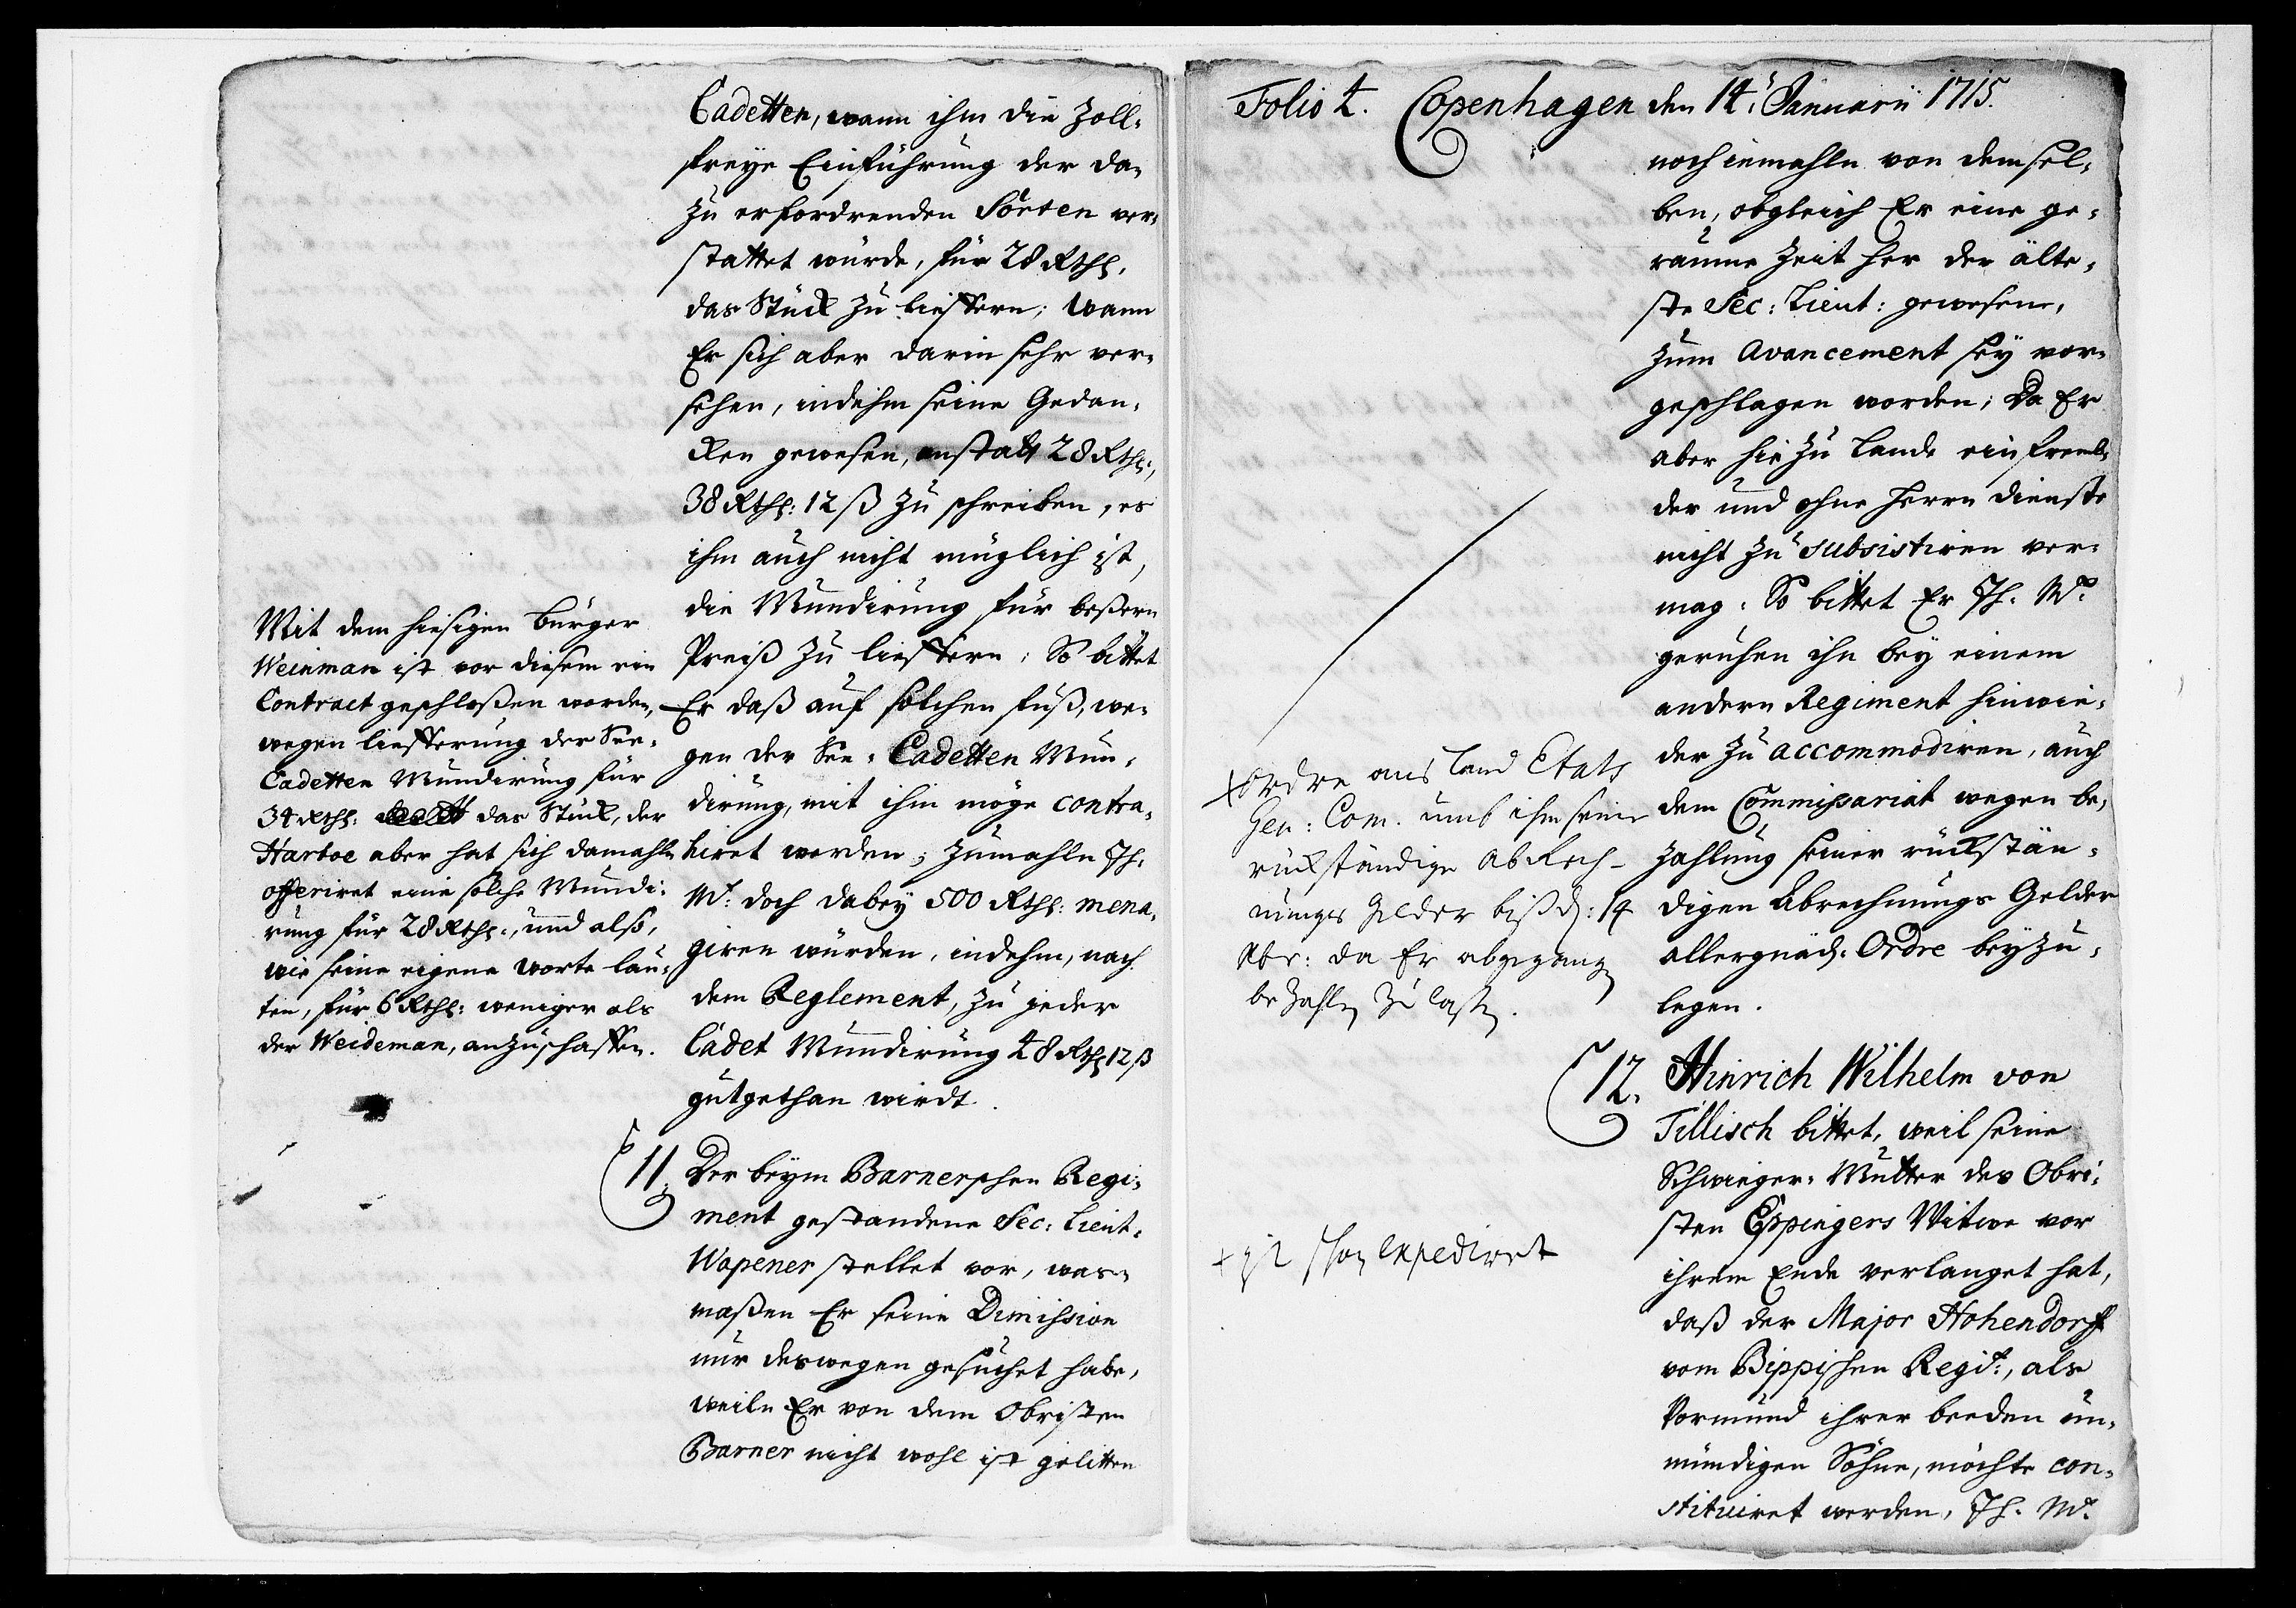 Cadetten, wann ihm die Zoll-
freye Einführung der da-
zu erfordrenden Sorten ver-
stattet würde, für 28 Rthl.
das Stück zu lieffern; Wann
Er sich aber darin sehr ver-
sehen, indehm seine Gedan-
ken gewesen, anstatt 28 Rthl:,
38 Rthl: 12 ß zu schreiben, es
ihm auch nicht müglich ist,
die Mundirung für beßern
Preiß zu lieffern; So bittet
Er daß auf solchen fuß, we-
gen der See-Cadetten Mun-
dirung, mit ihm möge contra-
hiret werden; Zumahln Ih.
Mt: doch dabey 500 Rthl: mena-
giren würden, indehm, nach
dem Reglement, zu jeder
Cadet Mundirung 48 Rthl 12 ß
gutgethan wirdt.
Mit dem hiesigen Bürger
Weinman ist vor diesem ein
Contract geschloßen worden,
wegen liefferung der See-
Cadetten Mundirung für
34 Rthl: das Stück, der
Harboe aber hat sich damahln
offeriret eine solche Mundi-
rung für 28 Rthl:, und alß,
wie seine eigene worte lau-
ten, für 6 Rthl: weniger als
der Weideman, anzuschaffen.
11. Der beym Barnerschen Regi-
ment gestandene Sec: Lieut.
Wapener stellet vor, was-
maßen Er seine Dimission
nur deswegen gesuchet habe,
weiln Er von dem Obristen
Barner nicht wohl ist gelitten
Folio 4. Copenhagen den 14. Januarii 1715.
noch iemahln von demsel-
ben, obgleich Er eine ge-
raume Zeit her der älte-
ste Sec: Lieut: gewesen,
zum Avancement sey vor-
geschlagen worden; Da Er
aber hie zu Lande ein fremb-
der und ohne Herrn dienste
nicht zu subsistiren ver-
mag: So bittet Er Ih. Mt.
geruhen ihn bey einem
andern Regiment hinwie-
der zu accommodiren, auch
dem Commissariat wegen be-
zahlung seiner rückstän-
digen Abrechnungs Gelder
allergnäd: Ordre beyzu-
legen.
+ Ordre ans Land Etats
Gen: Com. umb ihm seine
rückständige AbRech-
nungs Gelder biß d: 14
Xbr: da Er abgegang
bezahln zu laßn.
12. Hinrich Wilhelm von
Tillisch bittet, weil seine
Schwieger-Mutter des Obri-
sten Eppingers Witwe vor
ihrem Ende verlanget hat,
daß der Major Hohendorff
vom Bippischen Regit:, als
Vormund ihrer beeden un-
mündigen Söhne, möchte con-
stituiret werden, Ih. Mt.
+ ist schon expediret